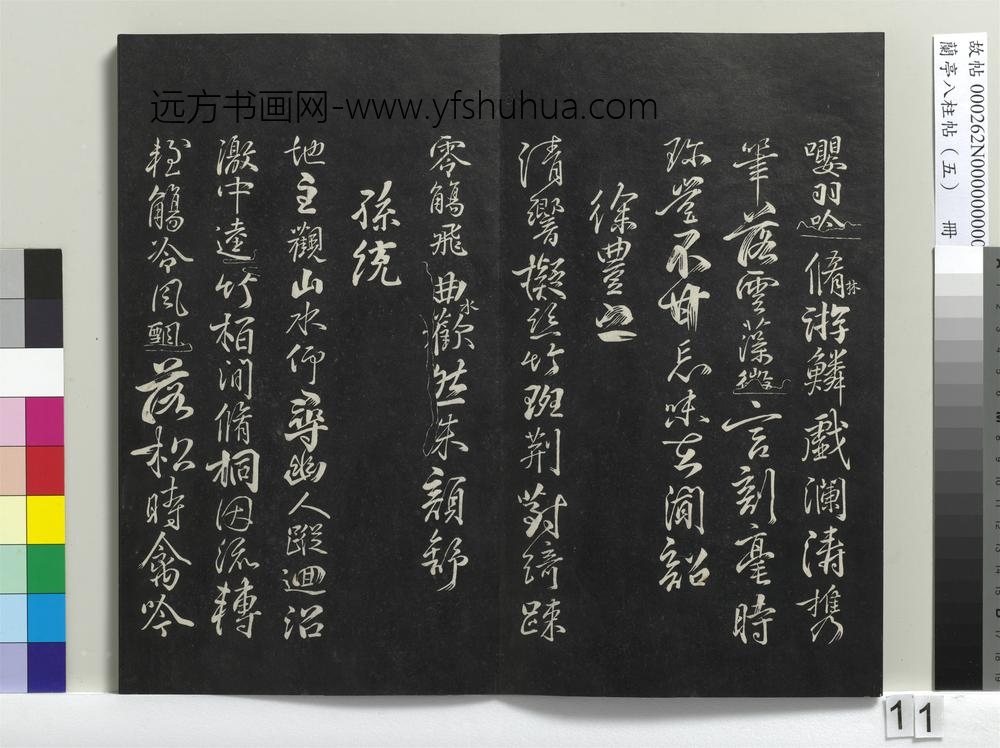 远方书画网-www.yfshuhua.com
故帖 000262N000000000
蘭亭八柱帖（五） 冊
嚶羽吟脩林游鱗戲瀾濤攜
筆落雲藻微言剖毫時
珍豈不甘忘味在聞韶
徐豐之
清響擬絲竹班荊對綺疎
零觴飛曲水歡然朱顏舒
孫統
地主觀山水仰尋幽人蹤迴沼
激中逵竹柏間脩桐因流轉
輕觴冷風飄落松時禽吟
11